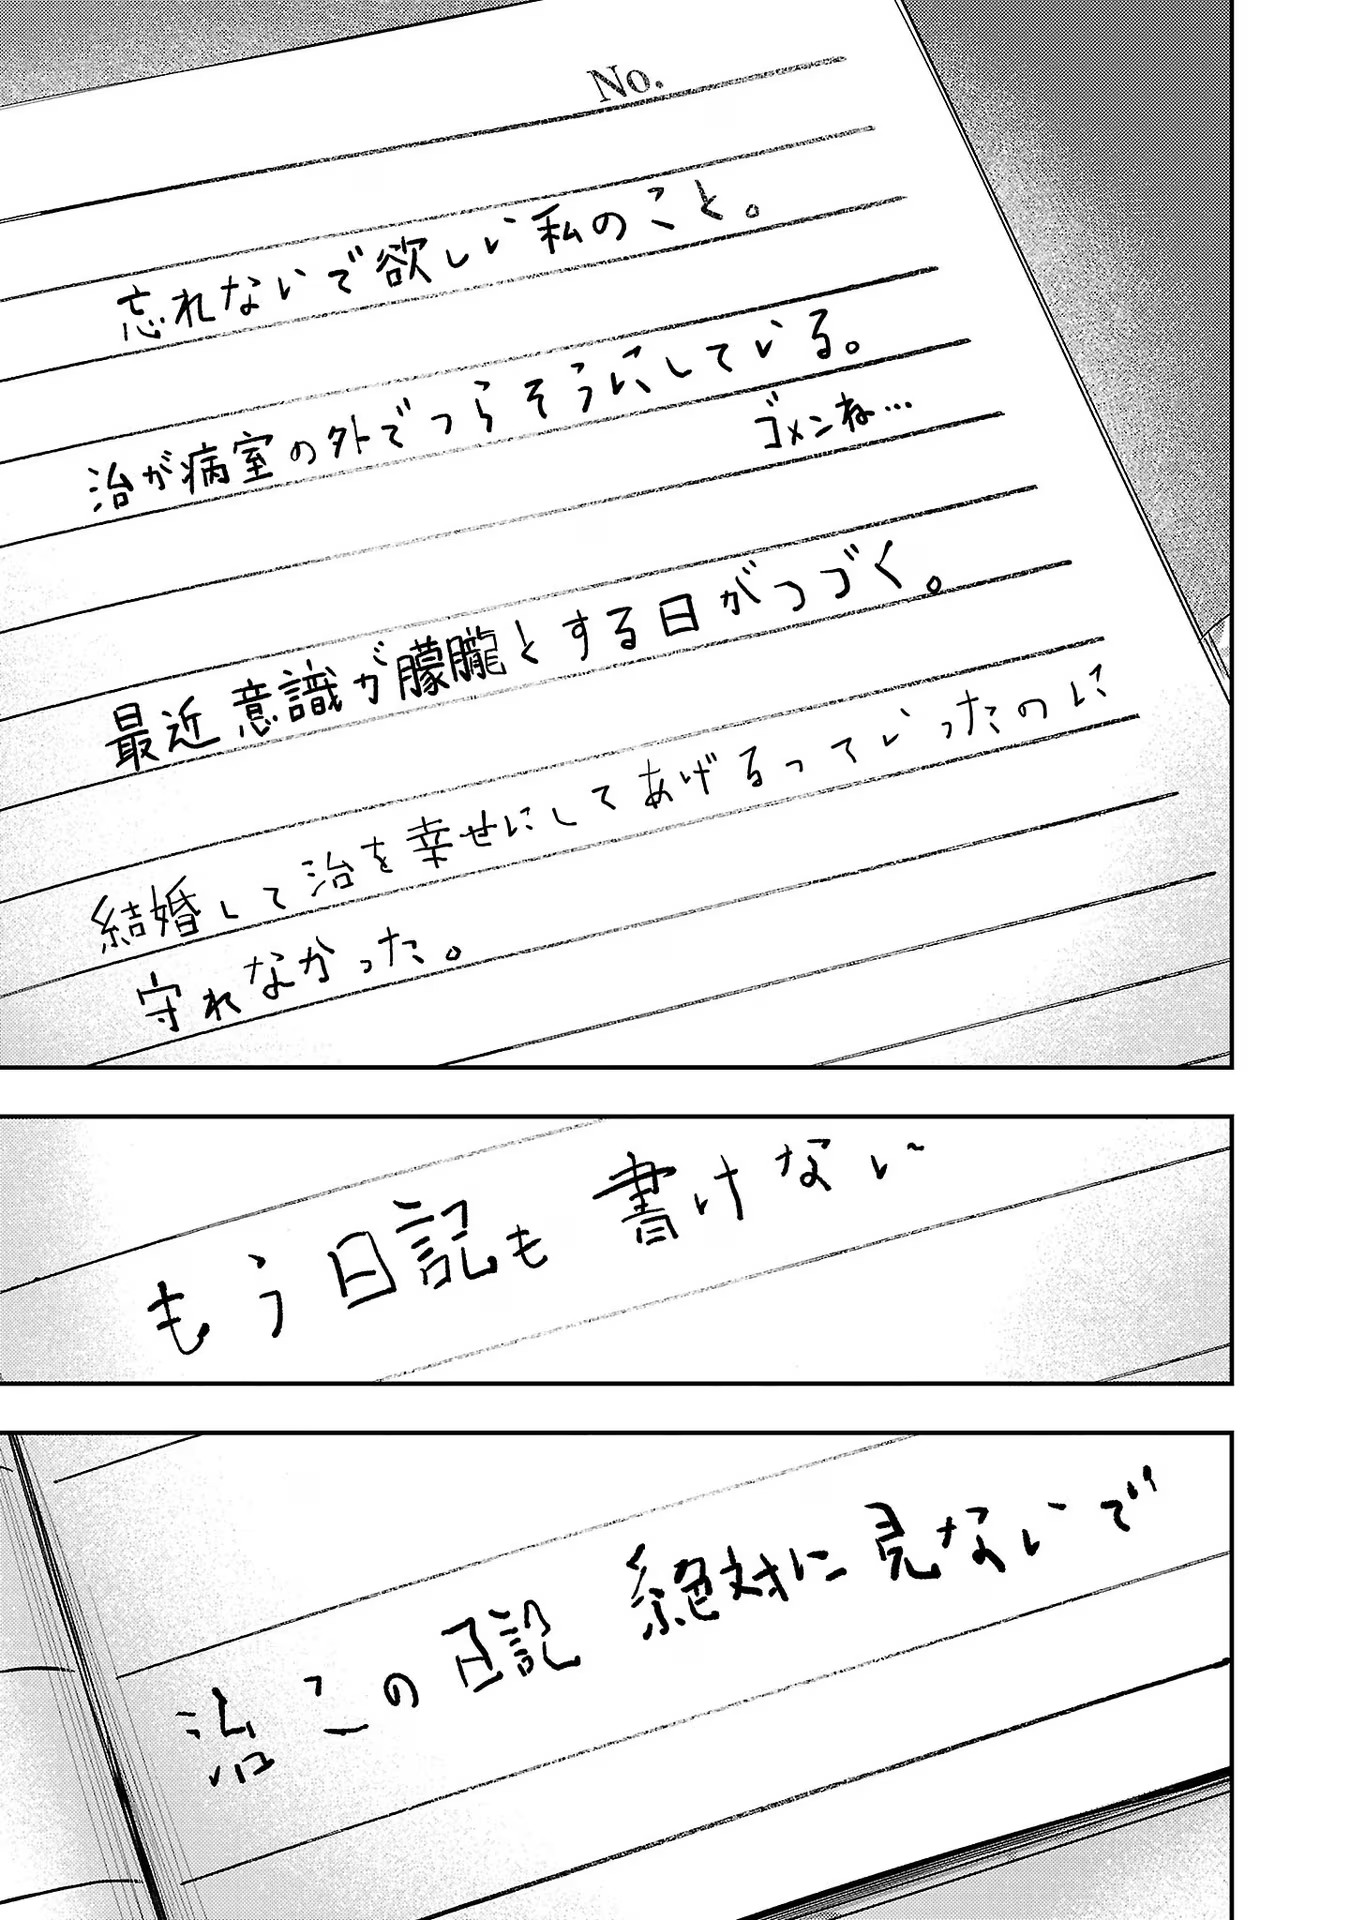 No.
忘れないで欲しい私のこと。
治が病室の外でつらそうにしている。
ゴメンね…
最近意識が朦朧とする日がつづく。
結婚して治を幸せにしてあげるっていったのに
守れなかった。
もう日記も書けない
治この日記 絶対に見ないで